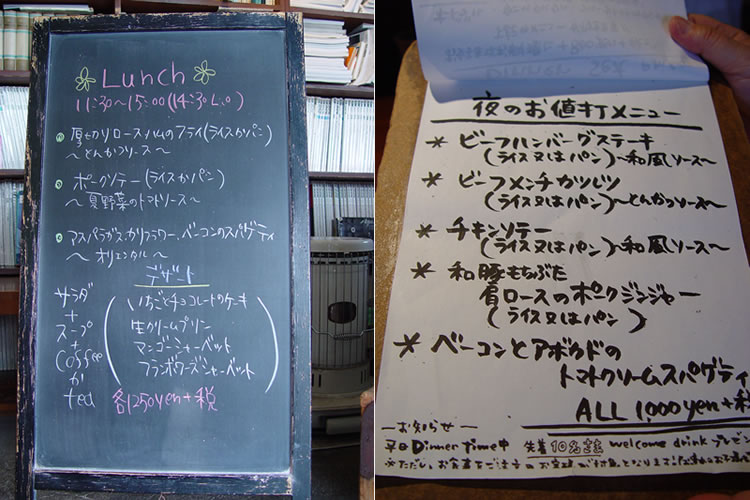 Lunch
11:30〜15:00(14:30 L.O)
厚切りロースハムのフライ(ライスかパン)
〜とんかつソース〜
ポークソテー(ライスかパン)
〜夏野菜のトマトソース〜
アスパラガス、カリフラワー、ベーコンのスパゲティ
〜オリエンタル〜
デザート
いちごとチョコレートのケーキ
生クリームプリン
マンゴーシャーベット
フランボワーズシャーベット
サラダ
+
スープ
+
coffee
か
tea
各1250yen+税
夜のお値打メニュー
* ビーフハンバーグステーキ
(ライス又はパン)〜和風ソース〜
* ビーフメンチカツレツ
(ライス又はパン)〜とんかつソース〜
* チキンソテー
(ライス又はパン)〜和風ソース〜
* 和豚もちぶた
肩ロースのポークジンジャー
(ライス又はパン)
* ベーコンとアボカドの
トマトクリームスパゲティ
ALL 1,000yen+税
―お知らせ―
平日Dinner Time中 先着10名さま welcome drink プレゼント
*ただし、お食事をご注文の